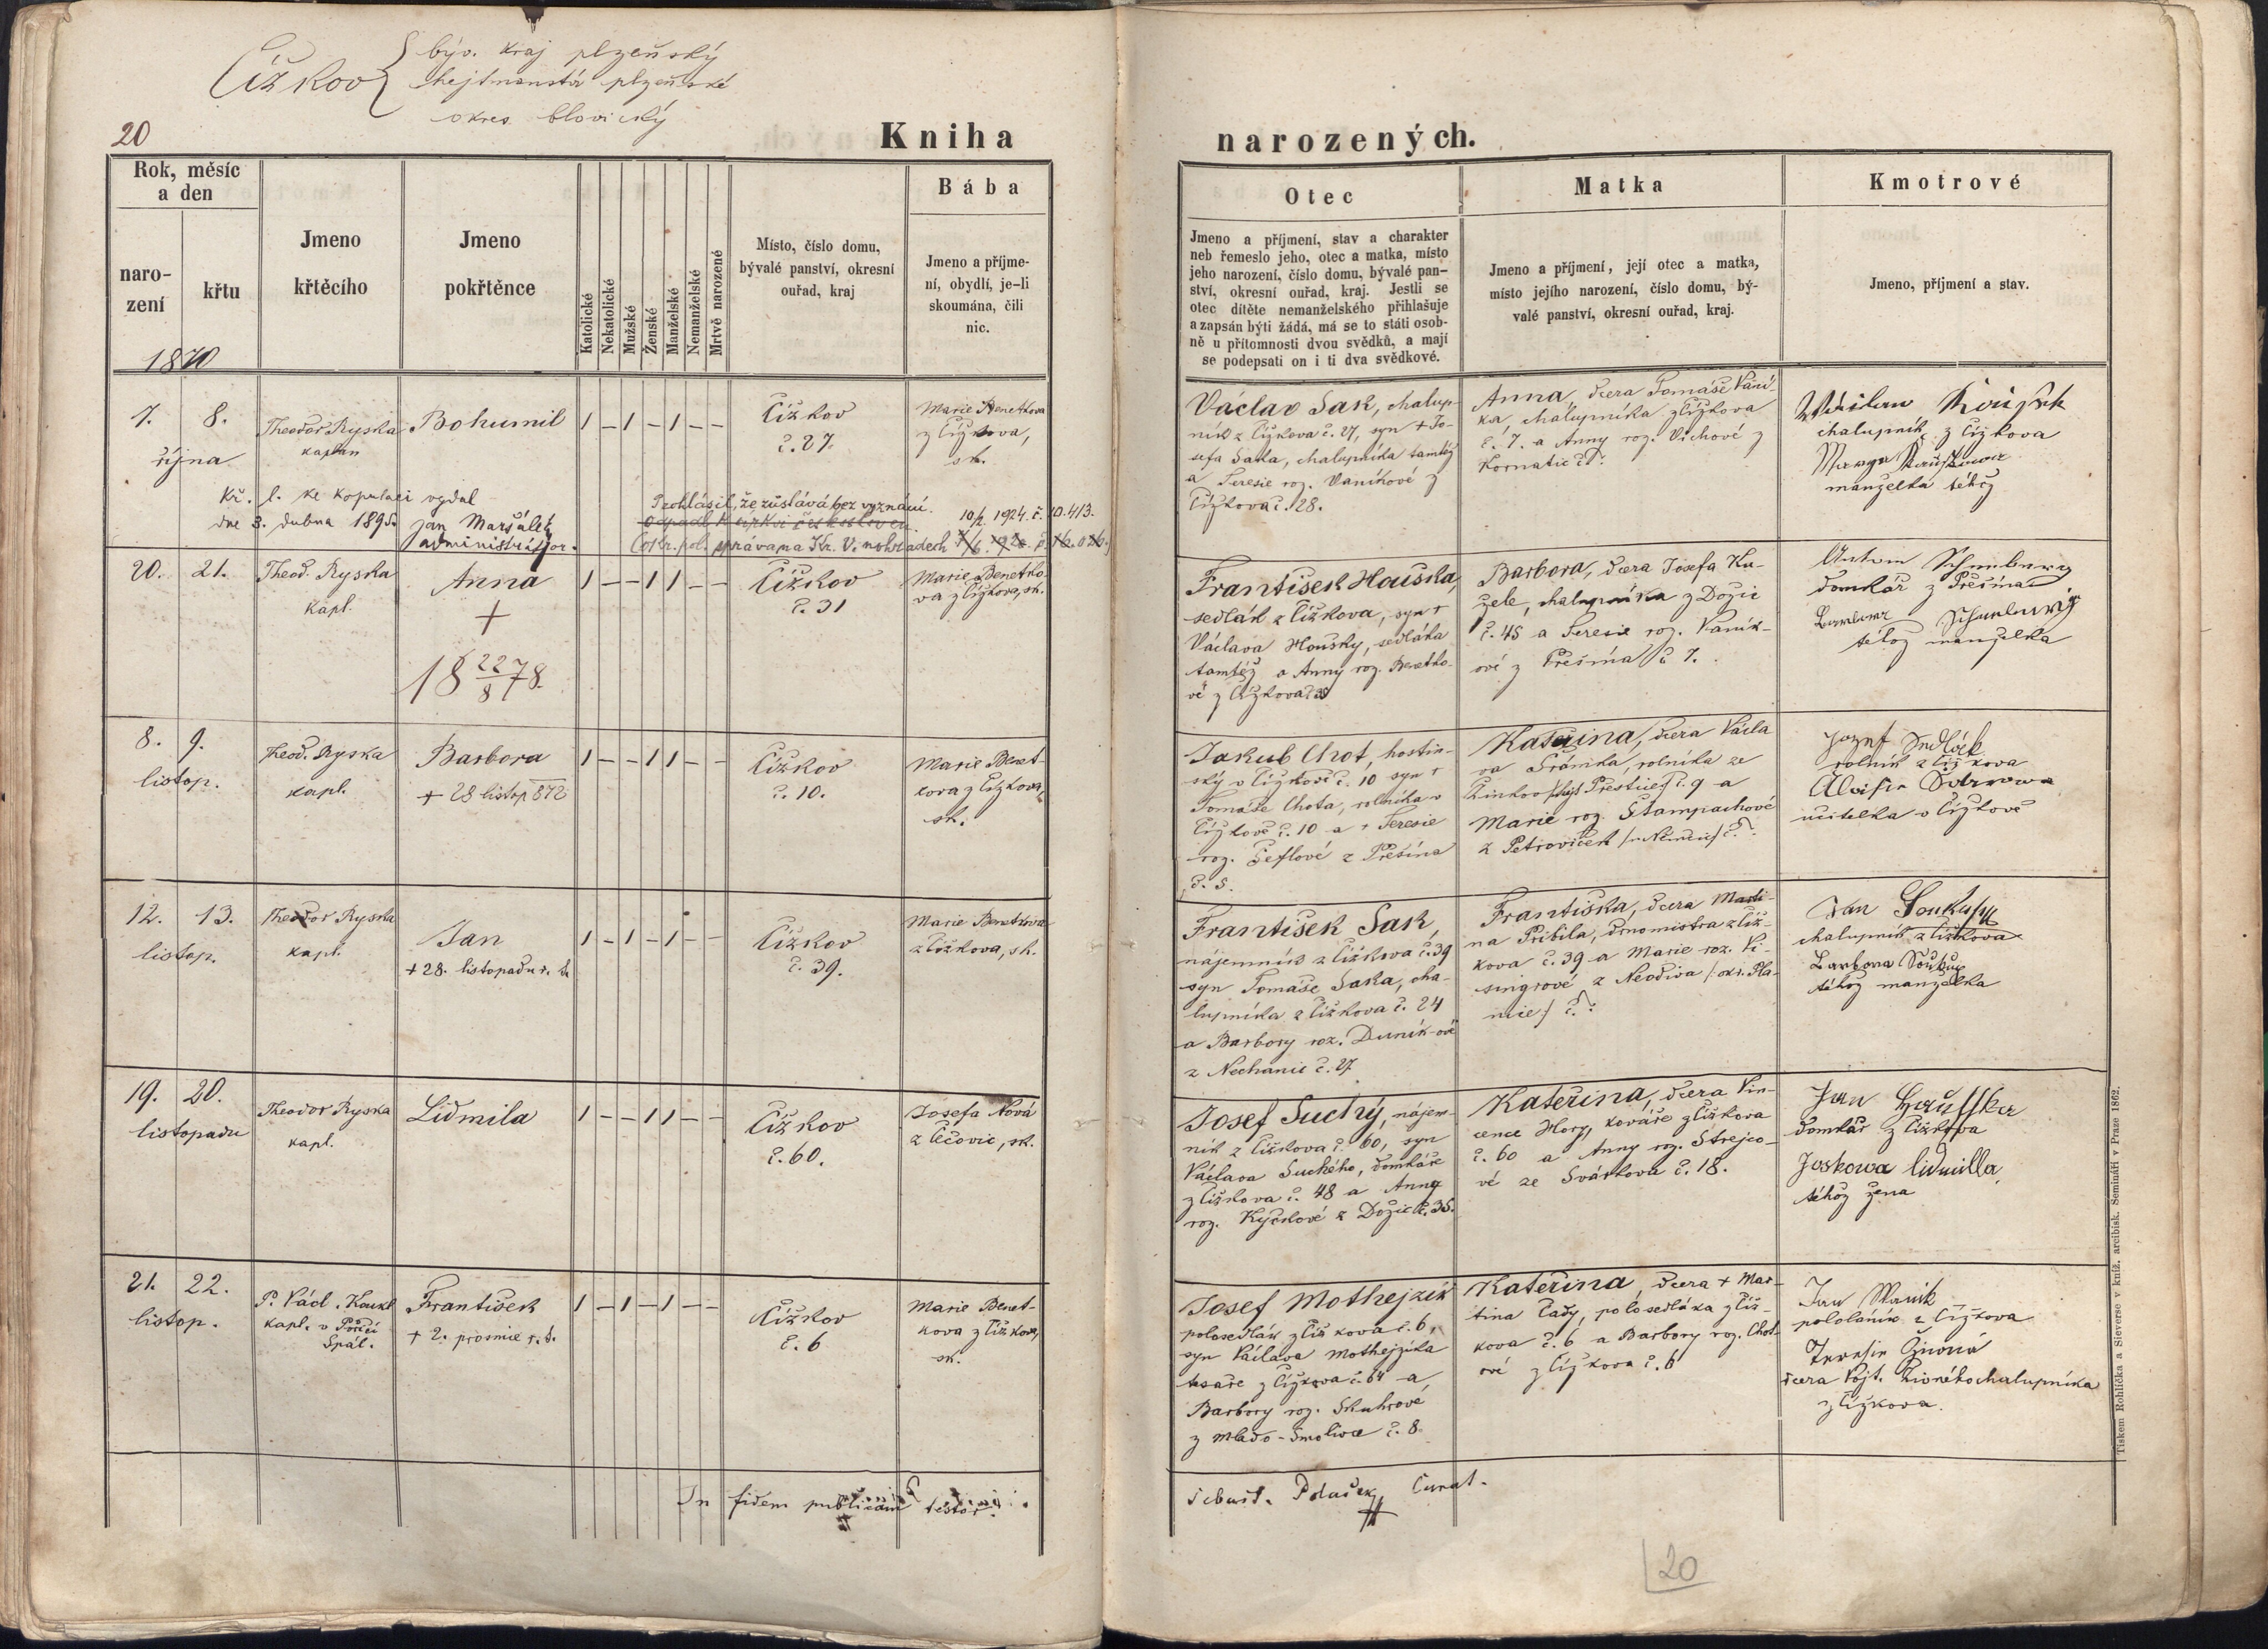 Čížkov
býv. kraj plzeňský
hejtmanství plzeňské
okres blovický
20
Kniha
Rok, měsíc
a den
naro-
zení
křtu
Jmeno
křtěcího
Jmeno
pokřtěnce
Katolické
Nekatolické
Mužské
Ženské
Manželské
Nemanželské
Mrtvě narozené
Místo, číslo domu,
bývalé panství, okresní
ouřad, kraj
Bába
Jmeno a příjme-
ní, obydlí, je-li
skoumána, čili
nic.
1870
7. 8.
října
Theodor Ryska
kaplan
Bohumil
1 – 1 – 1 – –
Čížkov
č. 27.
Marie Benetkova
z Čížkova,
sk.
Kř. l. ke kopulaci vydal
dne 3. dubna 1895. Jan Maršálek
administrátor.
Prohlásil, že zůstává bez vyznání.
10/2. 1924. č. 10.413.
20. 21.
Theod. Ryska
kapl.
Anna
+
18 22/8 78.
1 – – 1 1 – –
Čížkov
č. 31
Marie Benetko-
va z Čížkova, sk.
8. 9.
listop.
Theod. Ryska
kapl.
Barbora
+ 28 listop 872
1 – – 1 1 – –
Čížkov
č. 10.
Marie Benet-
kova z Čížkova,
sk.
12. 13.
listop.
Theodor Ryska
kapl.
Jan
+ 28. listopadu t. r.
1 – 1 – 1 – –
Čížkov
č. 39.
Marie Benetkova
z Čížkova, sk.
19. 20.
listopadu
Theodor Ryska
kapl.
Lidmila
1 – – 1 1 – –
Čížkov
č. 60.
Josefa Nová
z Čečovic, sk.
21. 22.
listop.
P. Václ. Koukl
kapl. v Poříčí
Spál.
František
+ 2. prosince t. r.
1 – 1 – 1 – –
Čížkov
č. 6
Marie Benet-
kova z Čížkova,
sk.
In fidem publicam testor
narozených.
Otec
Jmeno a příjmení, stav a charakter
neb řemeslo jeho, otec a matka, místo
jeho narození, číslo domu, bývalé pan-
ství, okresní ouřad, kraj. Jestli se
otec dítěte nemanželského přihlašuje
a zapsán býti žádá, má se to státi osob-
ně u přítomnosti dvou svědků, a mají
se podepsati on i ti dva svědkové.
Matka
Jmeno a příjmení, její otec a matka,
místo jejího narození, číslo domu, bý-
valé panství, okresní ouřad, kraj.
Kmotrové
Jmeno, příjmení a stav.
Václav Sak, chalup-
ník z Čížkova č. 27, syn + Jo-
sefa Saka, chalupníka tamtéž
a Teresie roz. Vaníkové z
Čížkova č. 28.
Anna, dcera Tomáše Vaní-
ka, chalupníka z Čížkova
č. 7. a Anny roz. Víchové z
Kornatic č ?
chalupník z Čížkova
manželka téhož
František Houška,
sedlák z Čížkova, syn +
Václava Houšky, sedláka
tamtéž a Anny roz. Benetko-
vé z Čížkova
Barbora, dcera Josefa Ku-
žele, chalupníka z Dožic
č. 45 a Teresie roz. Vaník-
ové z Přešína č 7.
Anton
domkář z Přešína
téhož manželka
Jakub Chot, hostin-
ský v Čížkově č. 10 syn +
Tomáše Chota, rolníka v
Čížkově č. 10 a + Teresie
roz. Šeflové z Přešína
č. 5.
Kateřina, dcera Václa
va Šrámka, rolníka ze
Žinkov Přeštice č. 9 a
Marie roz. Štampachové
z Petroviček č. ?
Jozef Sedlák
rolník z Čížkova
učitelka v Čížkově
František Sak,
nájemník z Čížkova č. 39
syn Tomáše Saka, cha-
lupníka z Čížkova č. 24
a Barbory roz. Duník-ové
z Nechanic č. 27
Františka, dcera Marti-
na Přibila, drnomistra z Číž-
kova č. 39 a Marie roz. Ki-
singrové z Neodiva /: okr. Pla-
nice :/ č. ?
Jan Soukup
chalupník z Čížkova
Barbora Soukup
téhož manželka
Josef Suchý, nájem-
ník z Čížkova č. 60, syn
Václava Suchého, domkáře
z Čížkova č. 48 a Anny
roz. Kyčkové z Dožic č. 35.
Kateřina, dcera Vin-
cence Hory, kováře z Čížkova
č. 60 a Anny roz. Strejco-
vé ze Svárkova č. 18.
Jan
domkář z Čížkova
téhož žena
Josef Mothejzík
polosedlák z Čížkova č. 6,
syn Václava Mothejzíka
tesaře z Čížkova č. 64 a
Barbory roz. Skuhrové
z Mlado-Smolivce č. 8.
Kateřina, dcera + Mar-
tina Čady, polosedláka z Číž-
kova č. 6 a Barbory roz. Chot-
ové z Čížkova č. 6
Jan Wanik
pololáník z Čížkova
dcera Vojt. Živného chalupníka
z Čížkova.
Sebast. Polaček, Curat.
20
Tiskem Rohlíčka a Sieverse v kníž. arcibisk. Semináři v Praze 1862.